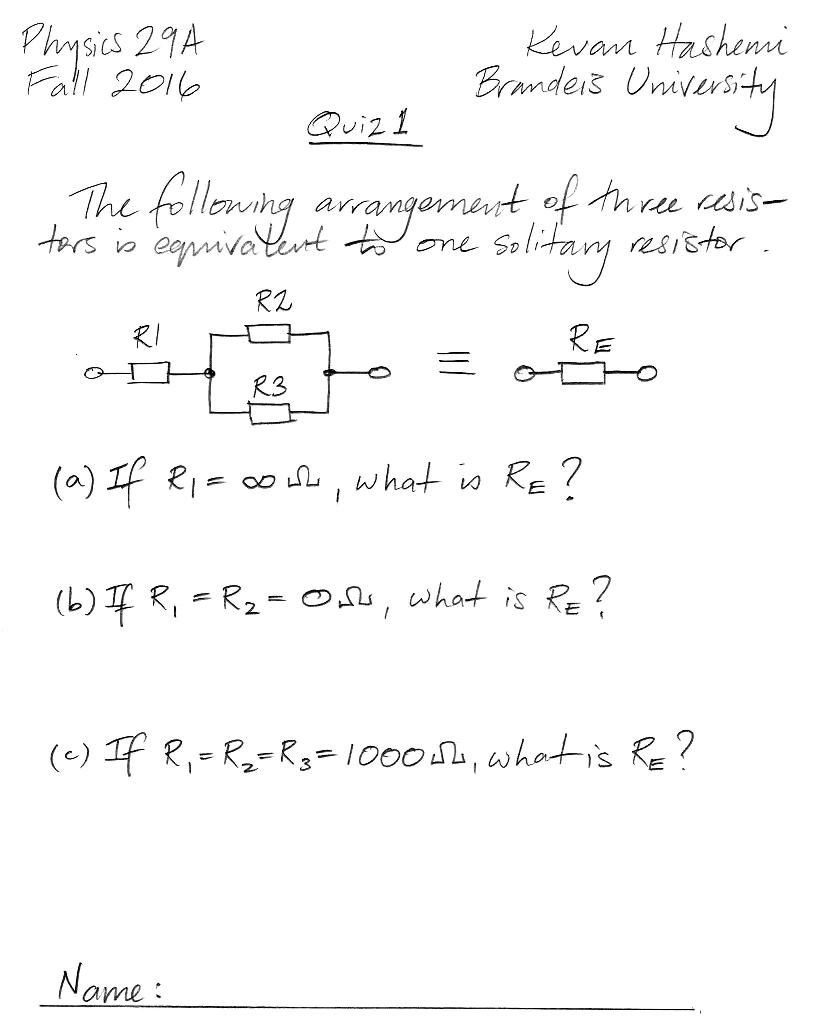 Physics 29A
Fall 2016
Kevan Hashemi
Brandeis University
Quiz 1
The following arrangement of three resis-
tors is equivalent to one solitary resistor.
R1
R2
R3
≡
RE
(a) If R1 = ∞Ω, what is RE?
(b) If R1 = R2 = 0Ω, what is RE?
(c) If R1 = R2 = R3 = 1000Ω, what is RE?
Name: